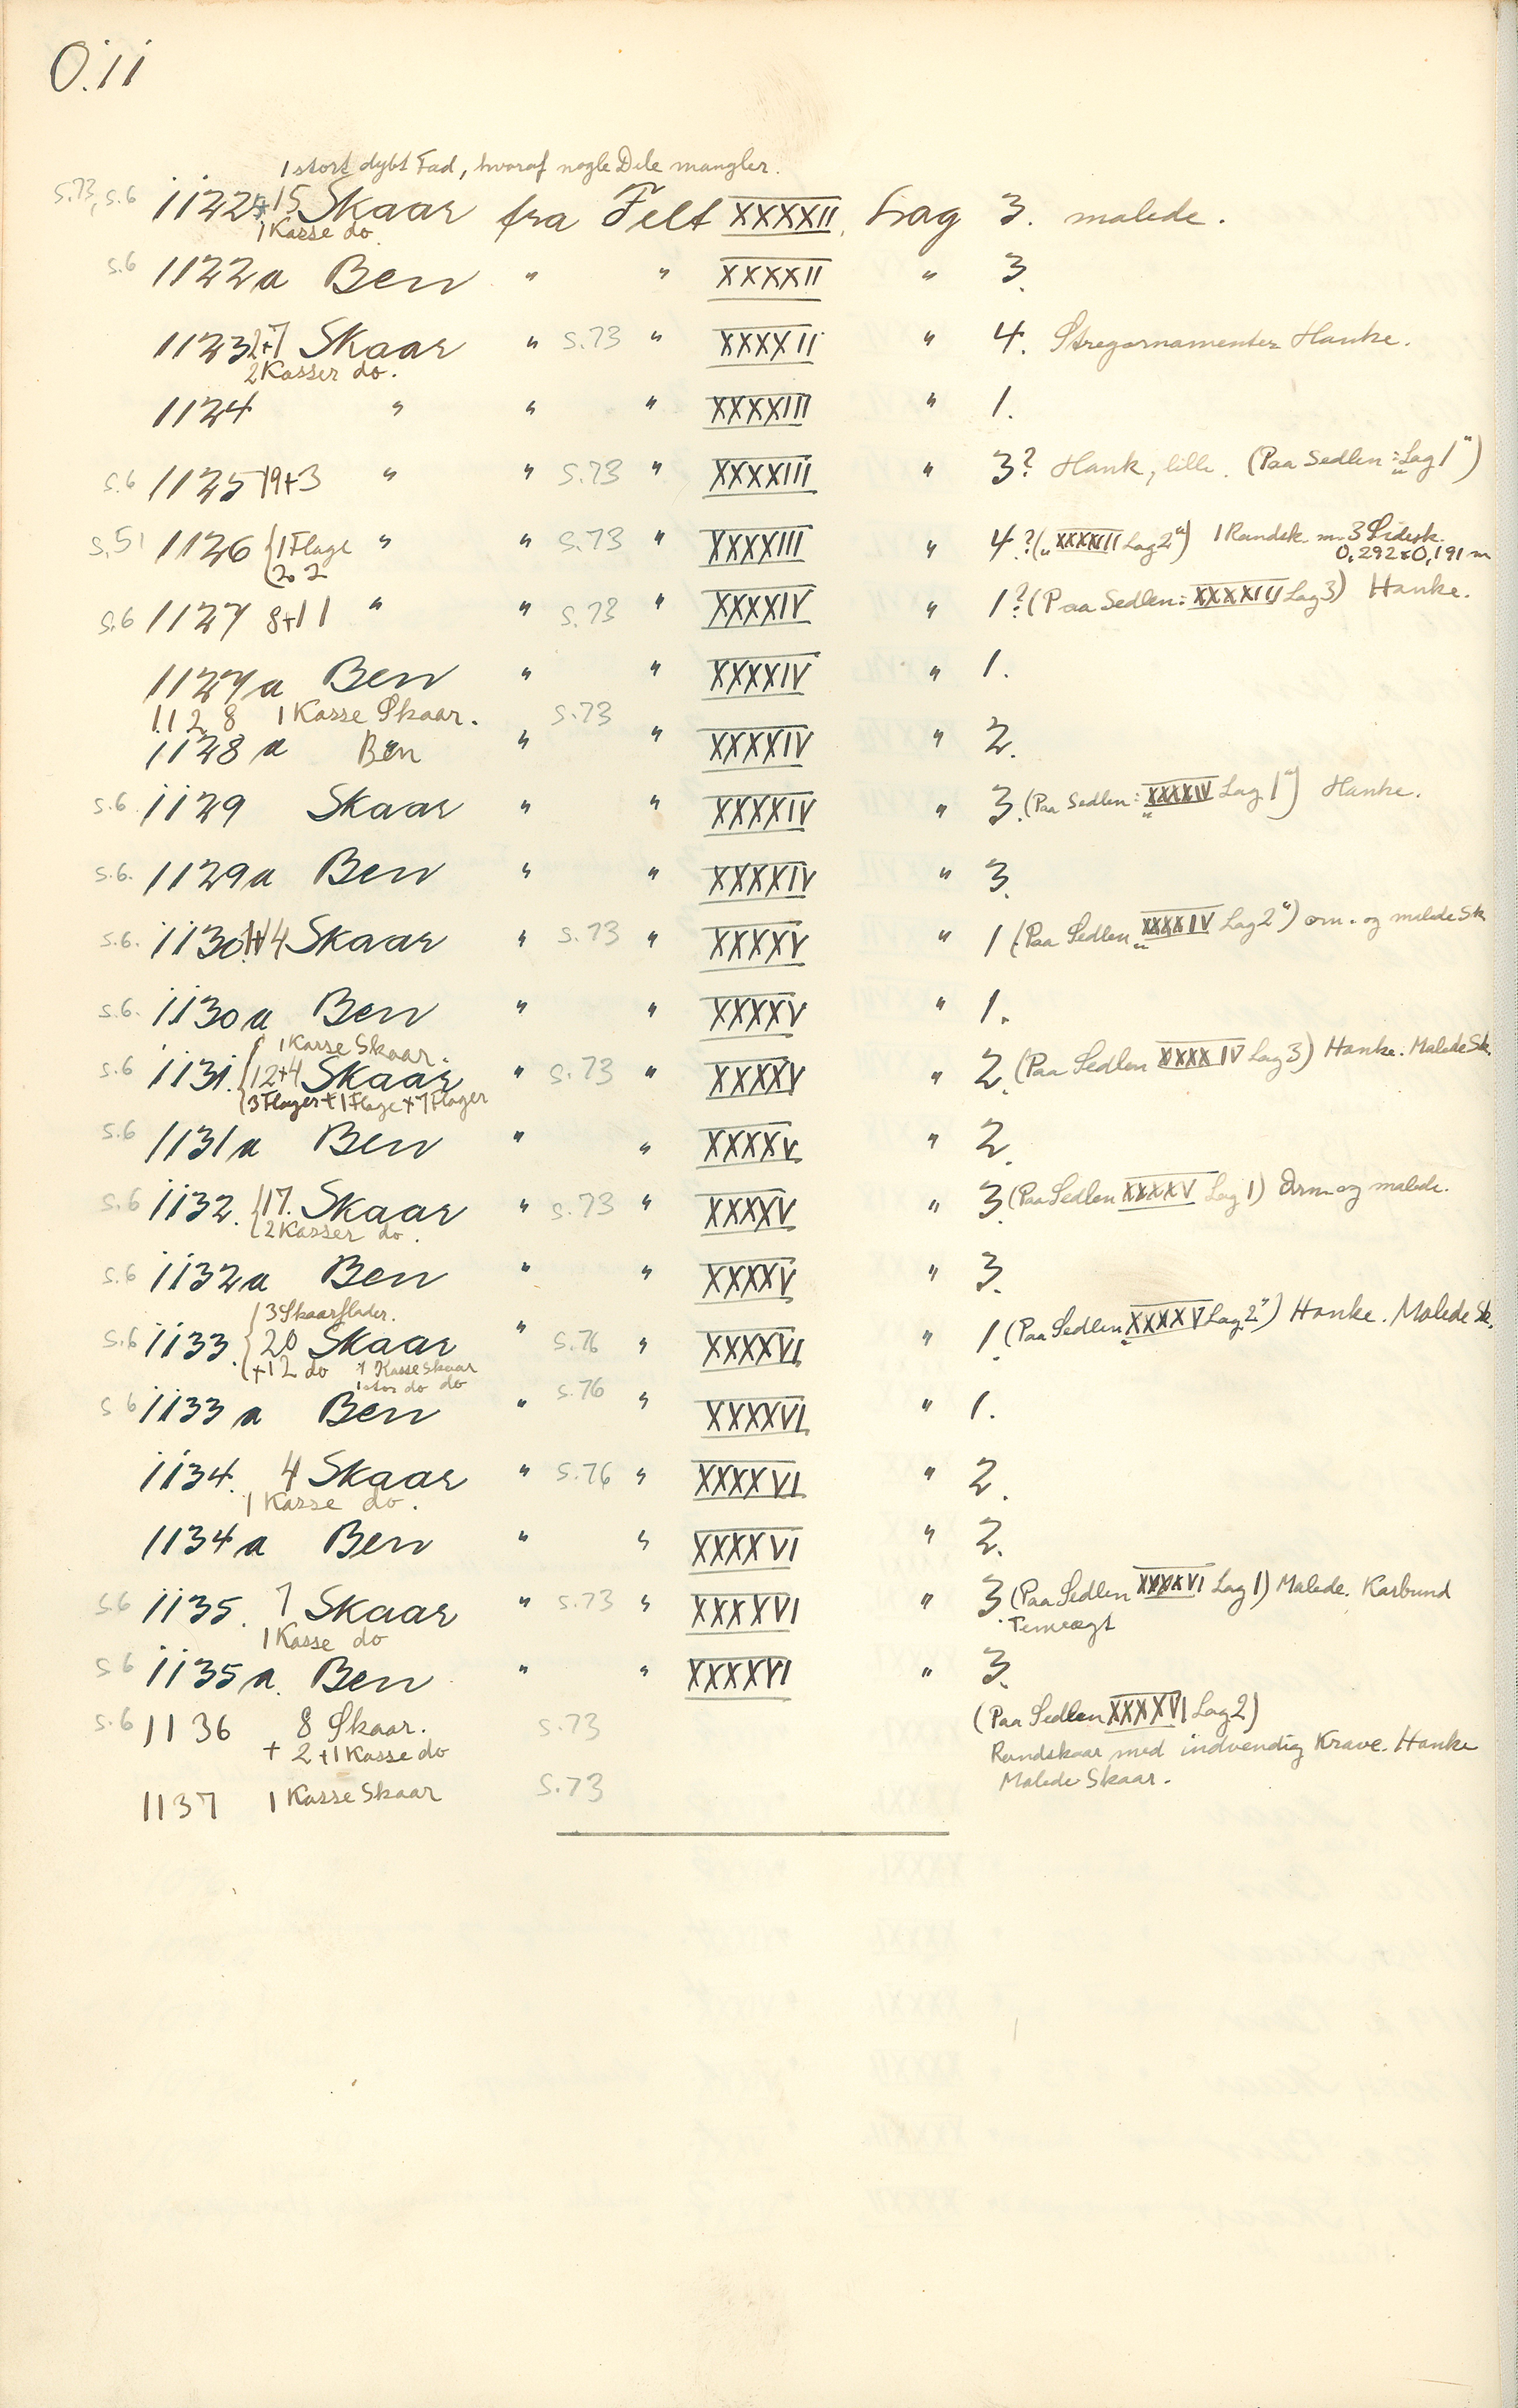 O.11
1 stort dybt Fad, hvoraf nogle Dele mangler.
s.73, s.6 1122 15 Skaar fra Felt XXXXII. Lag 3. malede.
1 Kasse do.
s.6 1122a Ben " " XXXXII " 3.
1123 2+7 Skaar " s.73 " XXXXII " 4. Stregornamenter Hanke.
2 Kasser do.
1124 " " " XXXXIII " 1.
s.6 1125 19+3 " " s.73 " XXXXIII " 3? Hank, lille. (Paa Sedlen: „Lag 1")
s.51 1126 { 1 Flage " " s.73 " XXXXIII " 4? („XXXXIII Lag 2") 1 Randsk. m. 3 Sidesk.
0,292x0,191 m
s.6 1127 8+11 " " s.73 " XXXXIV " 1? (Paa Sedlen: XXXXIII Lag 3) Hanke.
1127a Ben " " XXXXIV " 1.
1128 1 Kasse Skaar. s.73
1128a Ben " " XXXXIV " 2.
s.6. 1129 Skaar " " XXXXIV " 3. (Paa Sedlen: „XXXXIV Lag 1") Hanke.
s.6. 1129a Ben " " XXXXIV " 3.
s.6. 1130 Skaar " s.73 " XXXXV " 1 (Paa Sedlen „XXXXIV Lag 2") orn. og malede Sk
s.6. 1130a Ben " " XXXXV " 1.
{ 1 Kasse Skaar.
s.6 1131. { 12+4 Skaar " s.73 " XXXXV " 2. (Paa Sedlen XXXXIV Lag 3) Hanke. Malede Sk.
{ 3 Flager + 1 Flage + 7 Flager
s.6 1131a Ben " " XXXXV " 2.
s.6 1132. { 17. Skaar " s.73 " XXXXV " 3. (Paa Sedlen XXXXV Lag 1) Orn. og malede.
{ 2 Kasser do.
s.6 1132a Ben " " XXXXV " 3.
{ 3 Skaarflader.
s.6 1133. { 20 Skaar " s.76 " XXXXVI " 1. (Paa Sedlen „XXXXV Lag 2") Hanke. Malede Sk.
{ +12 do 1 Kasse Skaar
1 stor do do
s 6 1133a Ben " s.76 " XXXXVI " 1.
1134. 4 Skaar " s.76 " XXXXVI " 2.
1 Kasse do.
1134a Ben " " XXXXVI " 2.
s.6 1135. 7 Skaar " s.73 " XXXXVI " 3. (Paa Sedlen XXXXVI Lag 1) Malede. Karbund
1 Kasse do Tenvægt
s 6 1135a. Ben " " XXXXVI " 3.
s.6 1136 8 Skaar. s.73 (Paa Sedlen XXXXVI Lag 2)
+ 2 +1 Kasse do Randskaar med indvendig Krave. Hanke
Malede Skaar.
1137 1 Kasse Skaar s.73